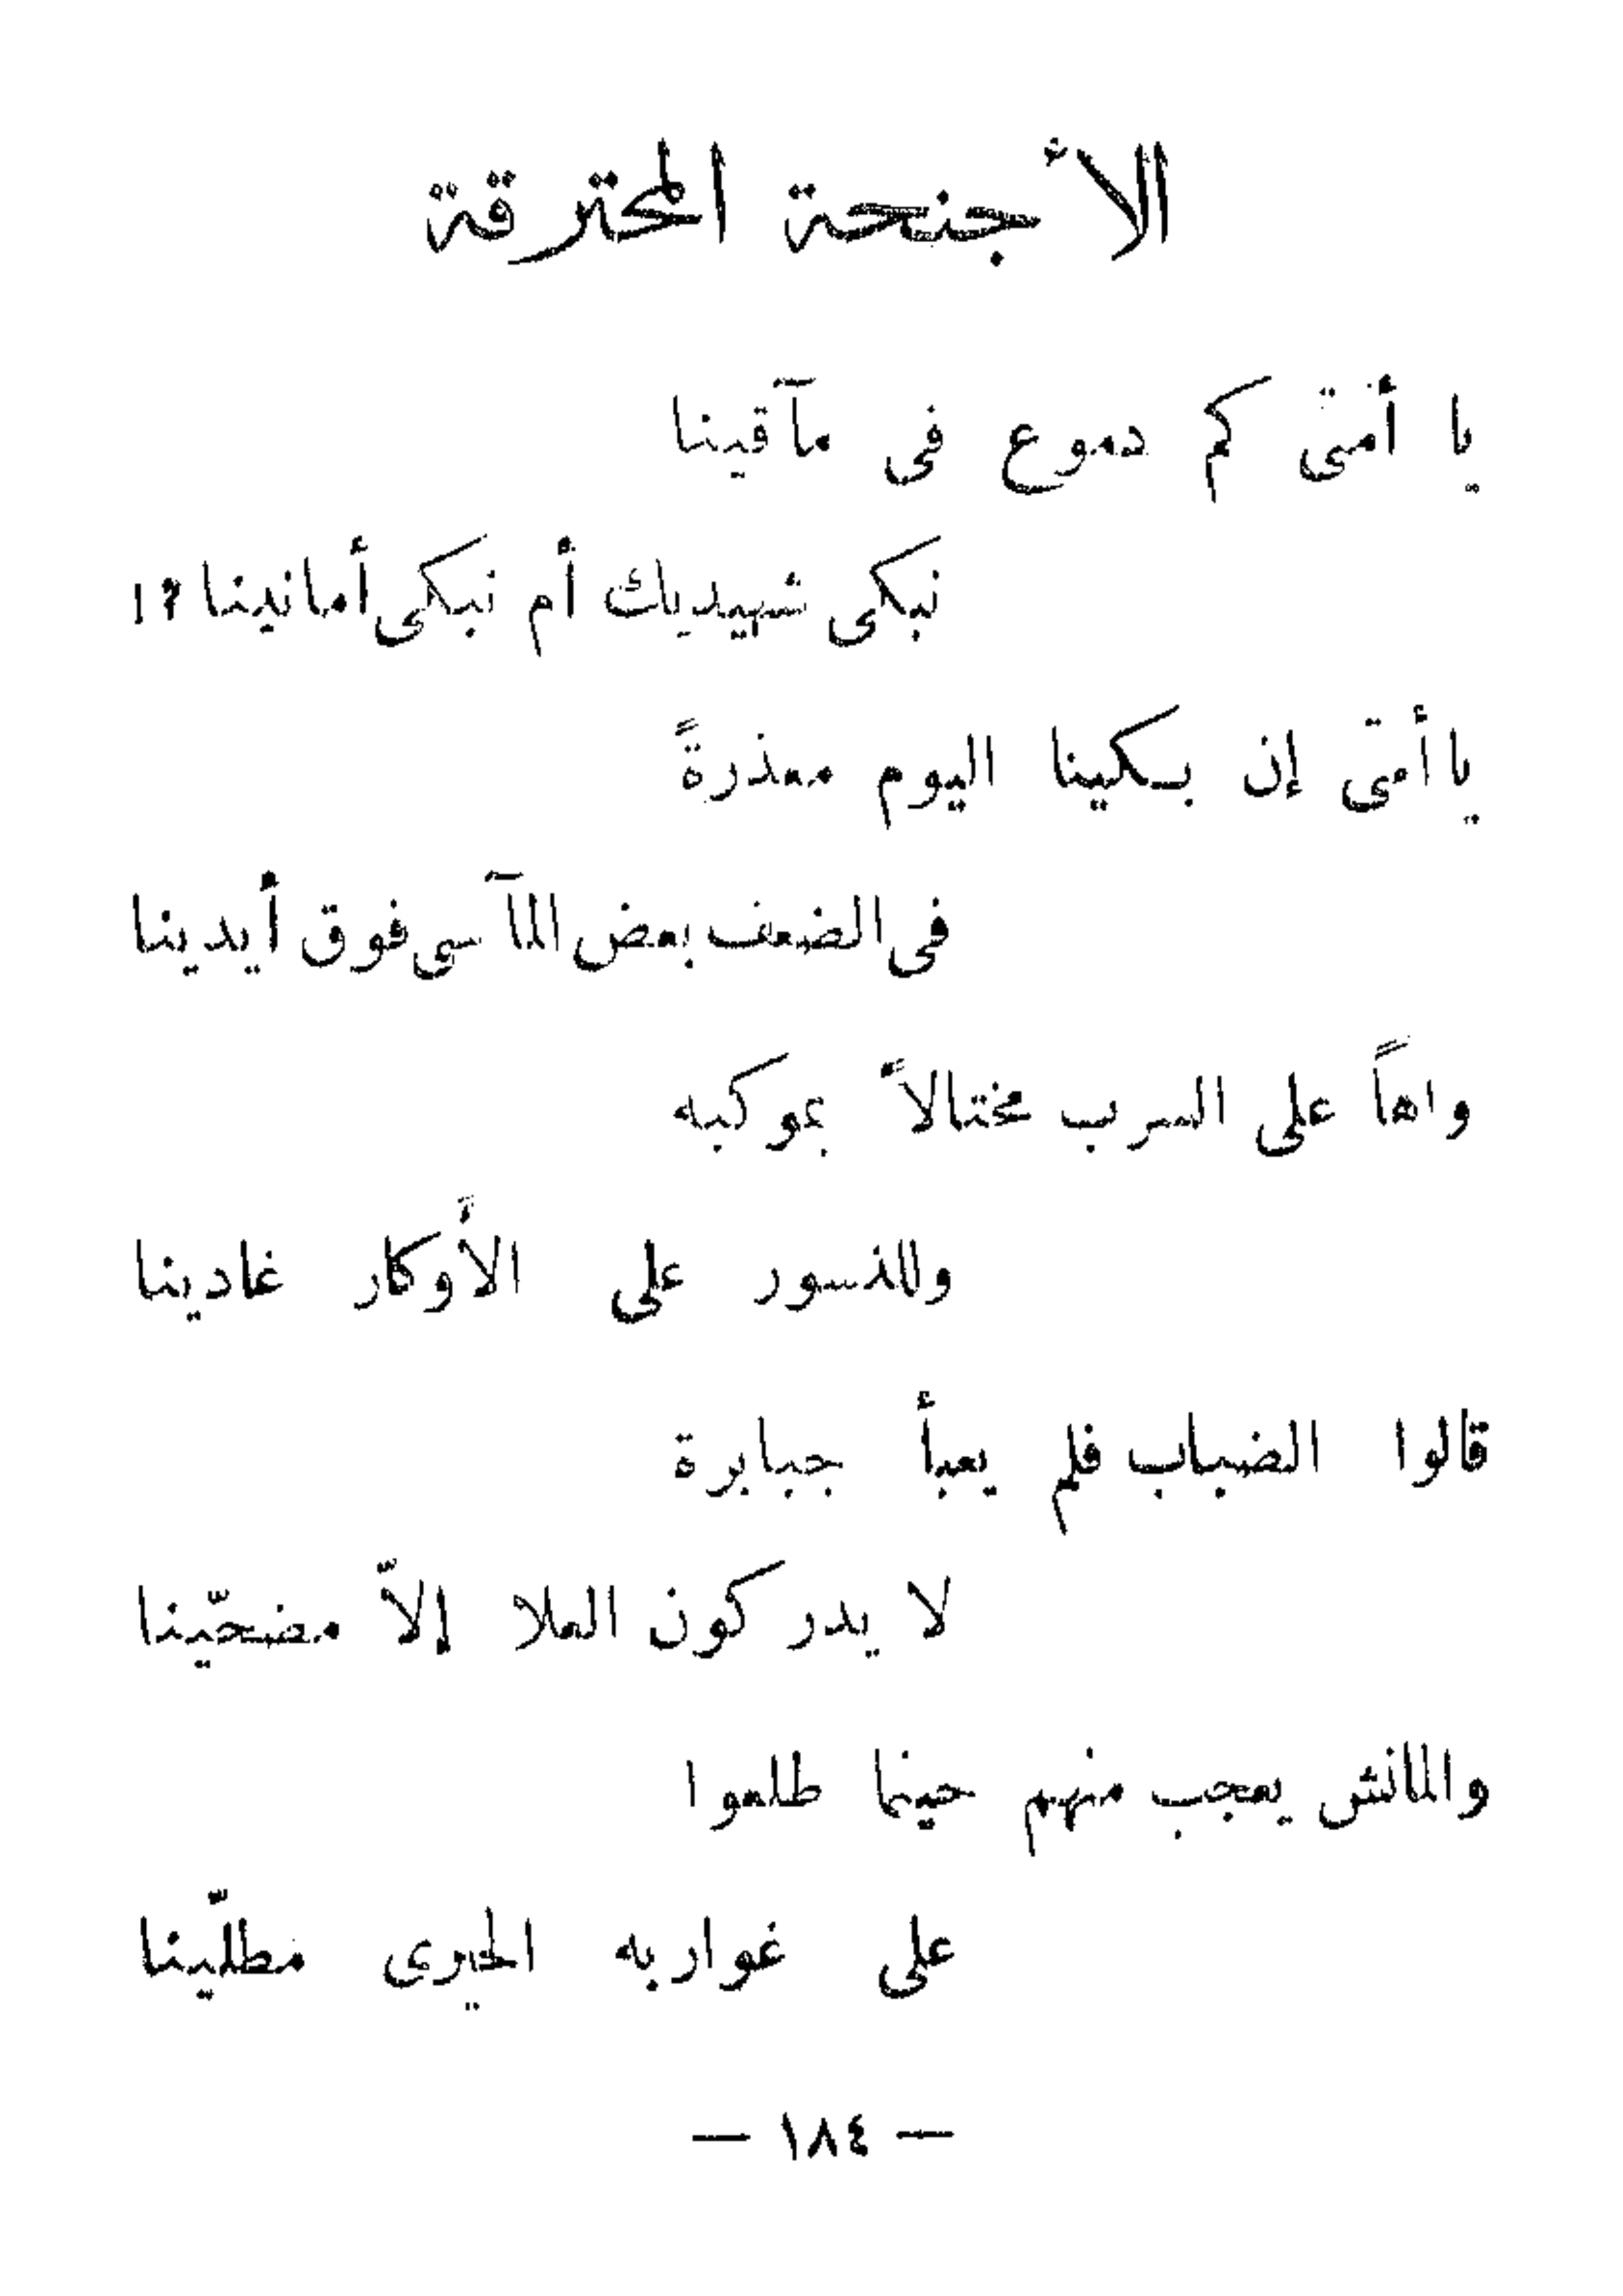 الأجنحة المحترقة
يا أمتى كم دموع فى مآقينا
نبكى شهيديك أم نبكى أمانينا ؟!
يا أمتى إن بكينا اليوم معذرةً
فى الضعف بعض المآسى فوق أيدينا
واهاً على السرب مختالاً بموكبه
وللنسور على الأوكار غادينا
قالوا الضباب فلم يعبأ جبابرة
لا يدركون العلا إلاّ مضحّينا
والمانش يعجب منهم حينما طلعوا
على غواربه الحيرى مطلّينا
— ١٨٤ —